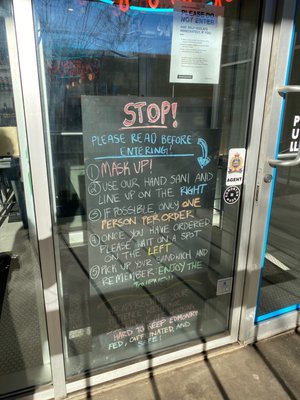 PLEASE
DO NOT
ENTER
STOP!
PLEASE READ BEFORE
ENTERING!
① MASK UP!
② USE OUR HAND SANI AND
LINE UP ON THE RIGHT
③ IF POSSIBLE ONLY ONE
PERSON PER ORDER
④ ONCE YOU HAVE ORDERED
PLEASE WAIT ON A SPOT
ON THE LEFT
⑤ PICK UP YOUR SANDWICH AND
REMEMBER: ENJOY THE
HARD TO KEEP EDMONTON
FED, CAFFEINATED AND
SAFE!
AGENT
PULL